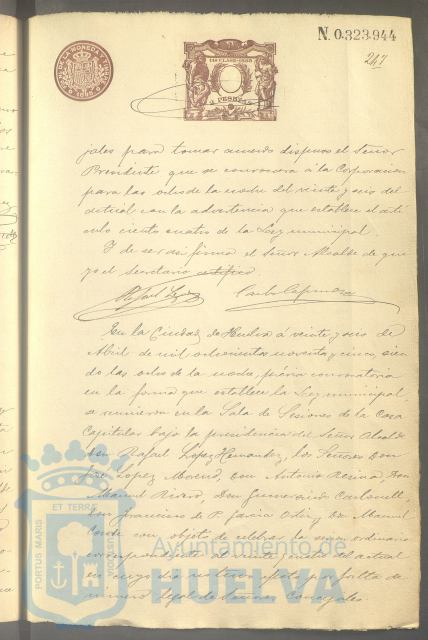 N. 0.323.944
247
11ª CLASE
PESETAS
jales para tomar acuerdo dispuso el Señor
Presidente que se convocara á la Corporacion
para las ocho de la noche del veinte y seis del
actual con la advertencia que establece el artí
culo ciento cuatro de la Ley municipal.
Y de ser asi firma el señor Alcalde de que
yo el Secretario certifico.
Rafael Lopez
En la Ciudad de Huelva á veinte y seis de
Abril de mil ochocientos noventa y cinco, sien
do las ocho de la noche, prévia convocatoria
en la forma que establece la Ley municipal,
se reunieron en la Sala de Sesiones de la Casa
Capitular bajo la presidencia del Señor Alcalde
Don Rafael Lopez Hernandez, los Señores Don
José Lopez Moreno, Don Antonio Reina, Don
Manuel Rivero, Don Gumersindo
Don Francisco de P. Garcia Ortiz y Don Manuel
Conde con objeto de celebrar la sesion ordinaria
correspondiente al veinte y del actual
en cuyo dia no tuvo efecto por falta de
número legal de Señores Concejales
PORTUS MARIS
ET TERRAE
CUSTODIA
Ayuntamiento de
HUELVA